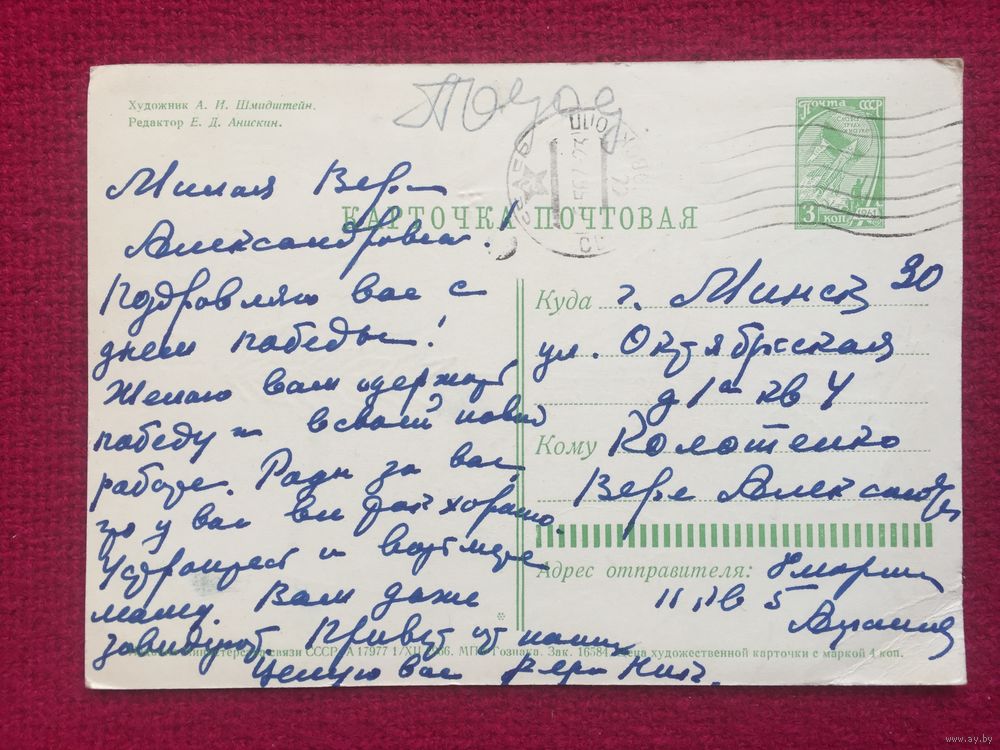 Художник А. И. Шмидштейн.
Редактор Е. Д. Анискин.
Почта СССР
3 коп
1961
КАРТОЧКА ПОЧТОВАЯ
Милая Вера
Александровна!
Поздровляю вас с
днем победы!
Желаю вам одержать
победу и в своей новой
работе. Рады за вас
что у вас все так хорошо.
Устроитесь и
машу. Вам даже
завидуют. Привет от мамы
Целую вас Вера
Куда г. Минск 30
ул. Октябрьская
д 1а кв 4
Кому Колотенко
Вере Александр
Адрес отправителя: 8 марта
11 кв 5
связи СССР. А 17977 1/XII 66. МПФ Гознака. Зак. 16584. Цена художественной карточки с маркой 4 коп.
www.ay.by